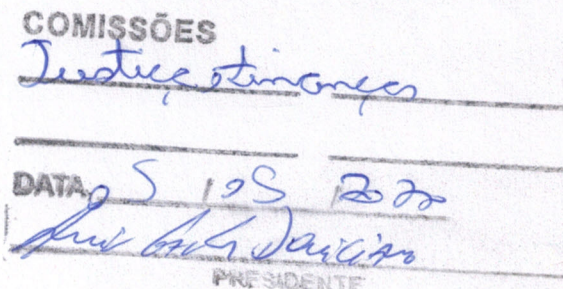 COMISSÕES
Justiça e Finanças
DATA 05 / 05 / 2020
PRESIDENTE